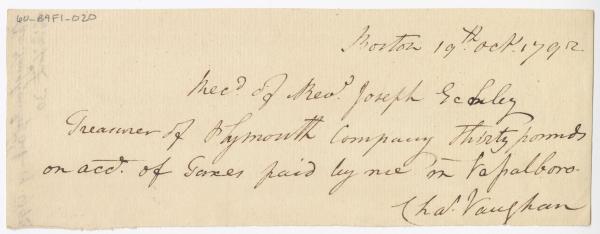 60-B9F1-020
Boston 19th Oct. 1792
Recd. of Revd. Joseph Eckley
Treasurer of Plymouth Company Thirty pounds
on acct. of Taxes paid by me in Vassalboro.
Chas. Vaughan